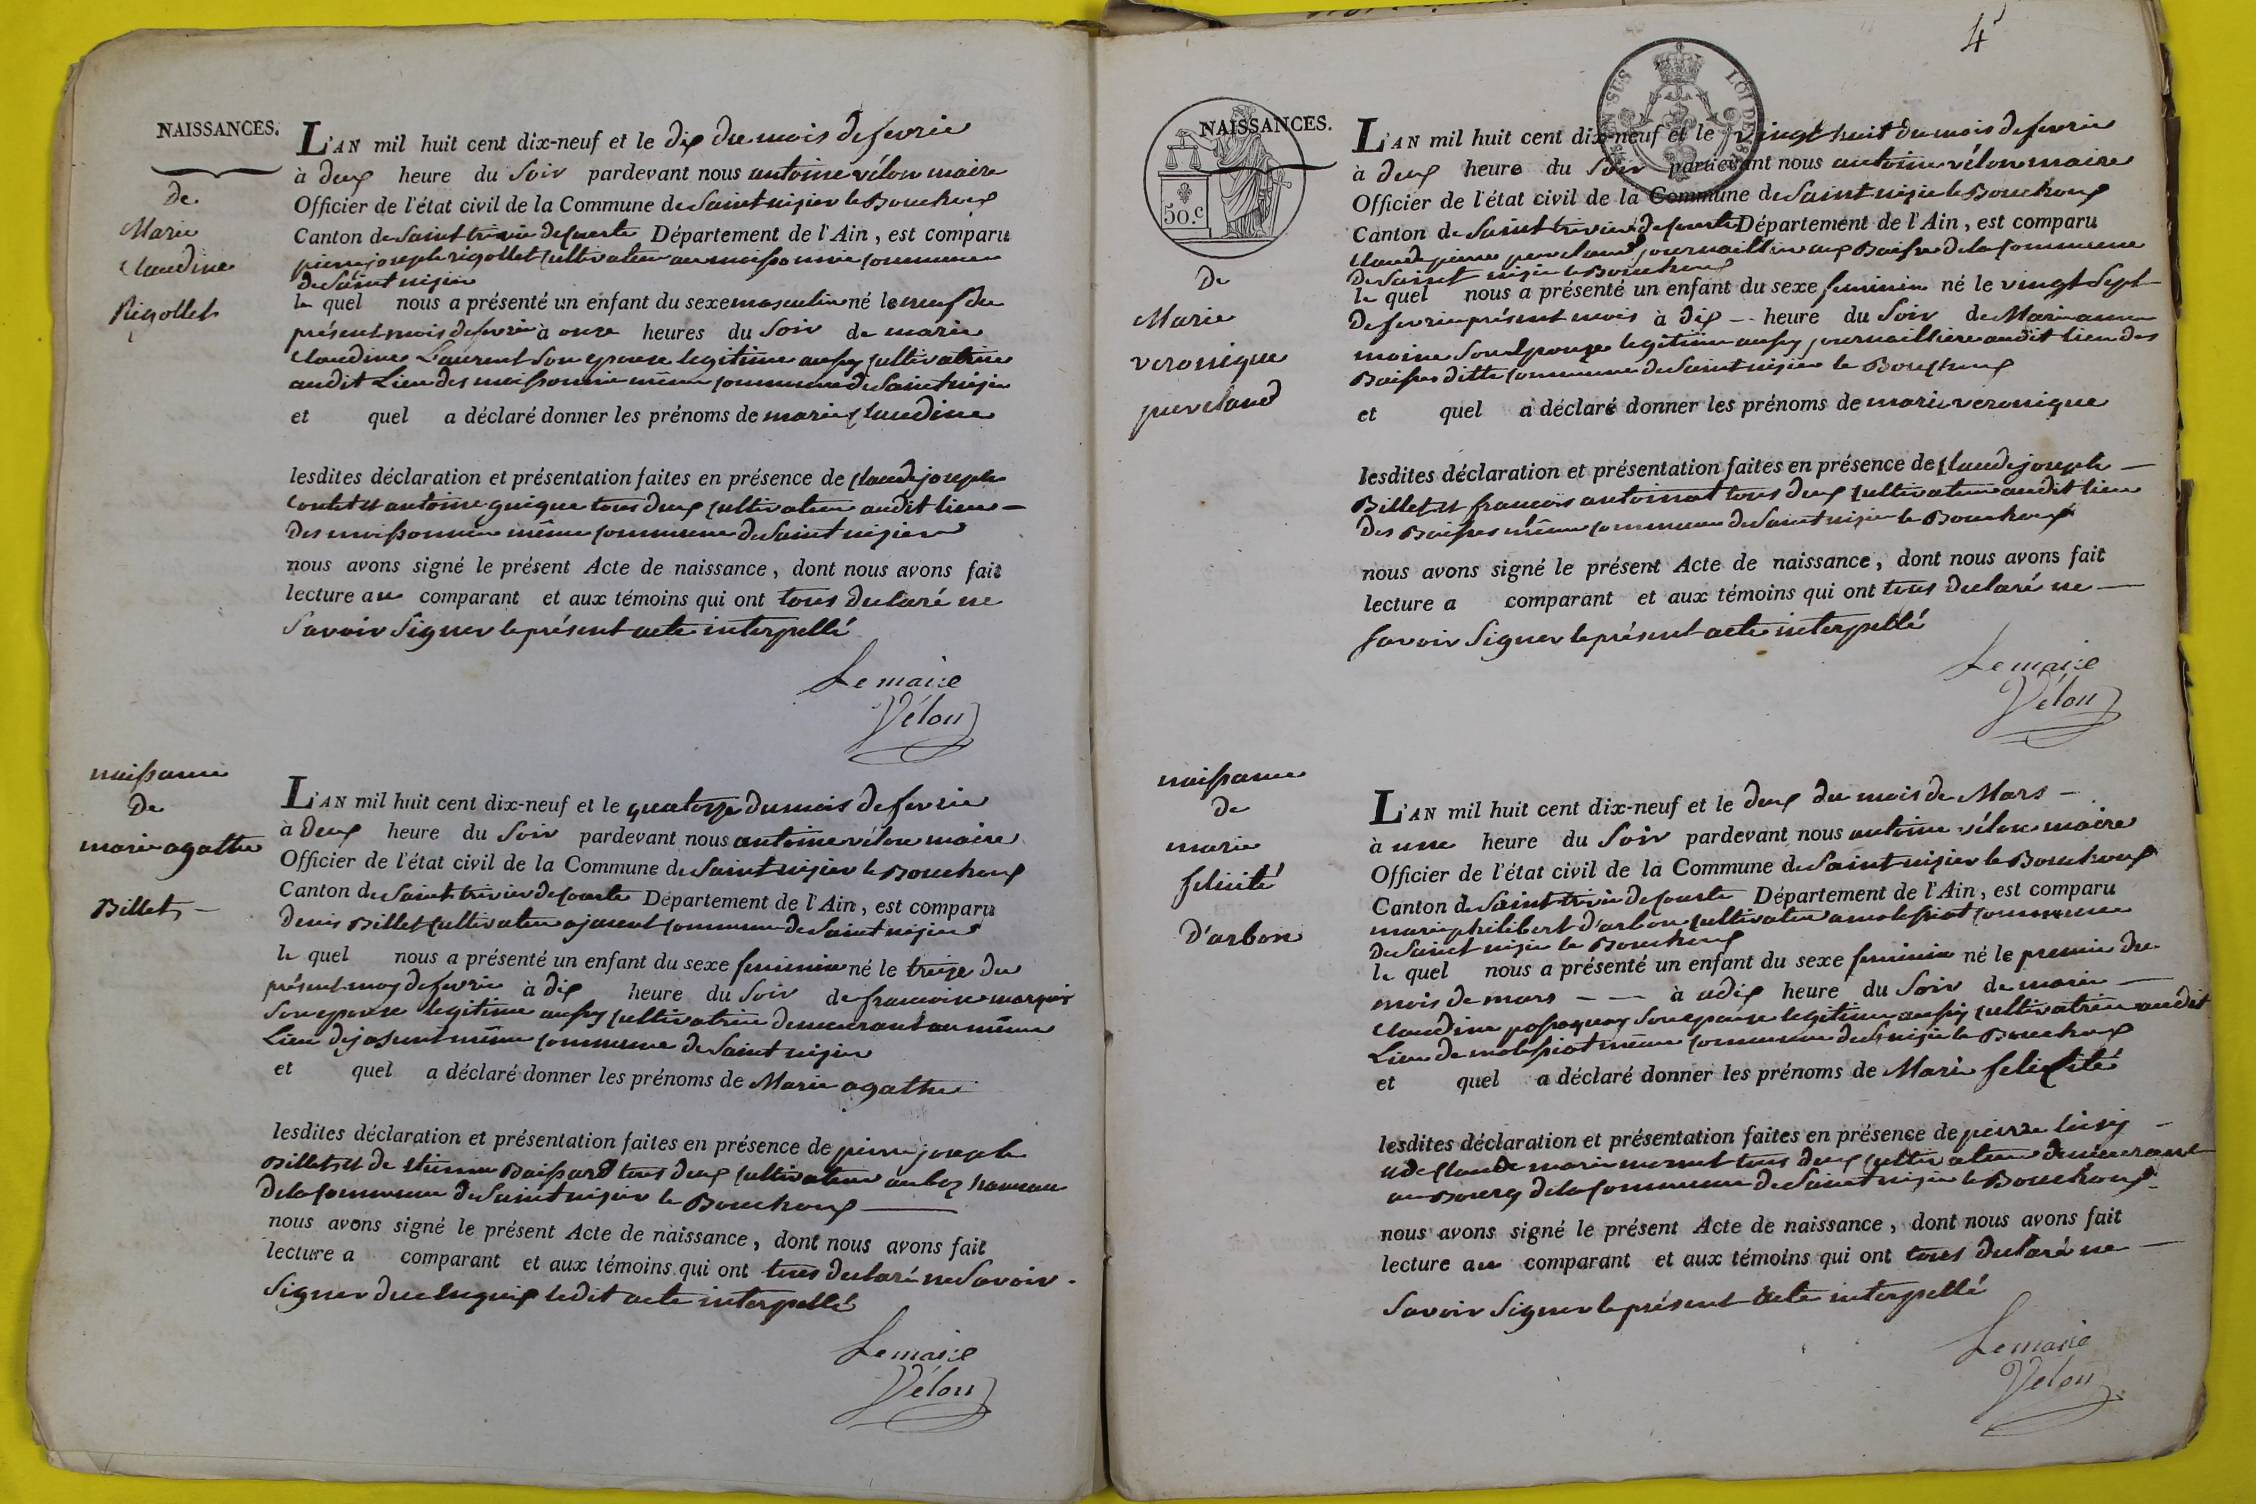 NAISSANCES.
de
Marie
Claudine
Rigollet
L'AN mil huit cent dix-neuf et le dix du mois de fevrie
à deux heure du Soir pardevant nous antoine vélon maire
Officier de l'état civil de la Commune de Saint nizier le Bouchoux
Canton de Saint trivie de courte Département de l'Ain, est comparu
pierre joseph rigollet cultivateur au moissonnie commune
de Saint nizier
le quel nous a présenté un enfant du sexe masculin né le neuf du
présent mois de fevrie à onze heures du Soir de marie
Claudine Laurent Son epouse legitime aussy cultivatrice
audit Lieu des moissonnie même commune de Saint nizier
et quel a déclaré donner les prénoms de marie Claudine
lesdites déclaration et présentation faites en présence de Claude joseph
Contet et antoine guigue tous deux cultivateur audit lieu
des moissonnie même commune de Saint nizier
nous avons signé le présent Acte de naissance, dont nous avons fait
lecture au comparant et aux témoins qui ont tous declaré ne
Savoir Signer le présent acte interpellé
Le maire
Vélon
naissance
de
marie agathe
Billet
L'AN mil huit cent dix-neuf et le quatorze du mois de fevrie
à deux heure du Soir pardevant nous antoine vélon maire
Officier de l'état civil de la Commune de Saint nizier le Bouchoux
Canton de Saint trivier de courte Département de l'Ain, est comparu
denis Billet cultivateur a jasent commune de Saint nizier
le quel nous a présenté un enfant du sexe feminin né le treize du
présent moy de fevrie à dix heure du Soir de francoise marquis
Son epouse legitime aussy cultivatrice demeurant au même
Lieu de jasent même commune de Saint nizier
et quel a déclaré donner les prénoms de Marie agathe
lesdites déclaration et présentation faites en présence de pierre joseph
Billet et de etienne Boissard tous deux cultivateur au
de la Commune de Saint nizier le Bouchoux
nous avons signé le présent Acte de naissance, dont nous avons fait
lecture a comparant et aux témoins qui ont tous declaré ne Savoir
Signer ledit acte interpellé
Le maire
Vélon
4
LOI DE
50.c
NAISSANCES.
de
Marie
veronique
perclaud
L'AN mil huit cent dix-neuf et le vingt huit du mois de fevrie
à deux heure du Soir pardevant nous antoine vélon maire
Officier de l'état civil de la Commune de Saint nizie le Bouchoux
Canton de Saint trivier de courte Département de l'Ain, est comparu
Claude pierre perclaud journaillier aux Boisses de la Commune
de Saint nizie le Bouchoux
le quel nous a présenté un enfant du sexe feminin né le vingt Sept
de fevrie présent mois à dix heure du Soir de Marianne
moine Son Epouze legitime aussy journailliere audit lieu des
Boisses ditte commune de Saint nizier le Bouchoux
et quel a déclaré donner les prénoms de marie veronique
lesdites déclaration et présentation faites en présence de Claude joseph
Billet et francois antoinat tous deux cultivateur audit lieu
des Boisses même commune de Saint nizie le Bouchoux
nous avons signé le présent Acte de naissance, dont nous avons fait
lecture a comparant et aux témoins qui ont tous declaré ne
Savoir Signer le présent acte interpellé
Le maire
Vélon
naissance
de
marie
felicité
D'arbon
L'AN mil huit cent dix-neuf et le deux du mois de Mars
à une heure du Soir pardevant nous antoine vélon maire
Officier de l'état civil de la Commune de Saint nizier le Bouchoux
Canton de Saint trivie de courte Département de l'Ain, est comparu
marie philibert d'arbon cultivateur a molissiat commune
de Saint nizie le Bouchoux
le quel nous a présenté un enfant du sexe feminin né le premie du
mois de mars à udix heure du Soir de marie
Claudine Son epouse legitime aussy cultivatrice audit
Lieu de molissiat même commune de St nizie le Bouchoux
et quel a déclaré donner les prénoms de Marie felicité
lesdites déclaration et présentation faites en présence de pierre
et de Claude marie monet tous deux cultivateur demeurant
au Bourg de la Commune de Saint nizie le Bouchoux
nous avons signé le présent Acte de naissance, dont nous avons fait
lecture au comparant et aux témoins qui ont tous declaré ne
Savoir Signer le présent acte interpellé
Le maire
Vélon